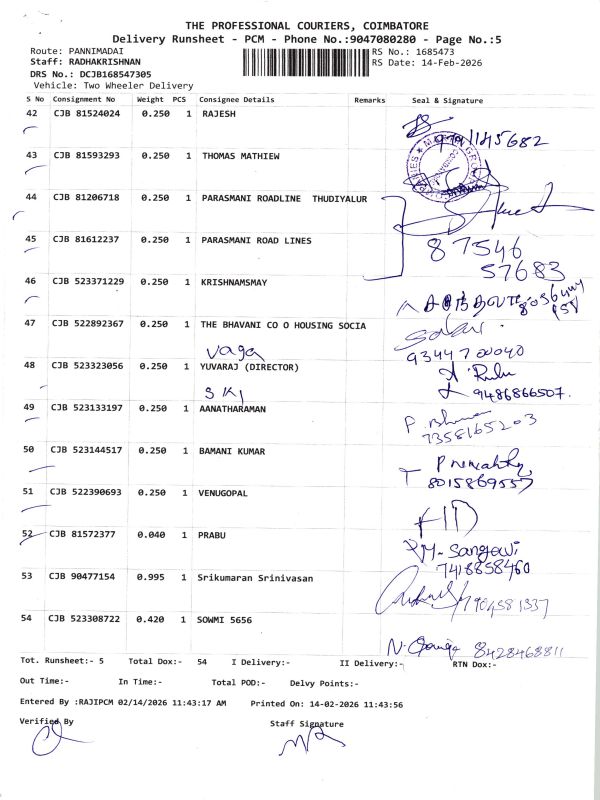 THE PROFESSIONAL COURIERS, COIMBATORE
Delivery Runsheet - PCM - Phone No.:9047080280 - Page No.:5
Route: PANNIMADAI RS No.: 1685473
Staff: RADHAKRISHNAN RS Date: 14-Feb-2026
DRS No.: DCJB168547305
Vehicle: Two Wheeler Delivery
S No Consignment No Weight PCS Consignee Details Remarks Seal & Signature
42 CJB 81524024 0.250 1 RAJESH
43 CJB 81593293 0.250 1 THOMAS MATHIEW
44 CJB 81206718 0.250 1 PARASMANI ROADLINE THUDIYALUR
45 CJB 81612237 0.250 1 PARASMANI ROAD LINES
87546
57683
46 CJB 523371229 0.250 1 KRISHNAMSMAY
47 CJB 522892367 0.250 1 THE BHAVANI CO O HOUSING SOCIA
vaga
9344700040
48 CJB 523323056 0.250 1 YUVARAJ (DIRECTOR)
SKJ
9486866507.
49 CJB 523133197 0.250 1 AANATHARAMAN
7358165203
50 CJB 523144517 0.250 1 BAMANI KUMAR
8015869557
51 CJB 522390693 0.250 1 VENUGOPAL
52 CJB 81572377 0.040 1 PRABU
7418858460
53 CJB 90477154 0.995 1 Srikumaran Srinivasan
54 CJB 523308722 0.420 1 SOWMI 5656
8428468811
Tot. Runsheet:- 5 Total Dox:- 54 I Delivery:- II Delivery:- RTN Dox:-
Out Time:- In Time:- Total POD:- Delvy Points:-
Entered By :RAJIPCM 02/14/2026 11:43:17 AM Printed On: 14-02-2026 11:43:56
Verified By Staff Signature